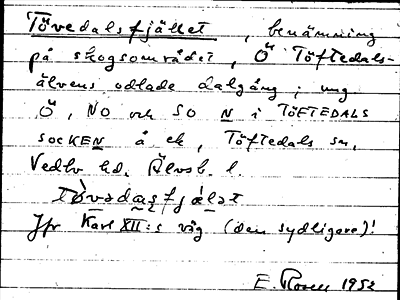 Tövedalsfjället, benämning
på skogsområdet, Ö Töftedals-
älvens odlade dalgång; ung
Ö, NO och SO N i TÖFTEDALS
SOCKEN å ek, Töftedals sn,
Vedbo hd. Älvsb. l.
tòvədasfjǽlət
Jfr Karl XII:s väg (den sydligare)!
E. Rosell 1952